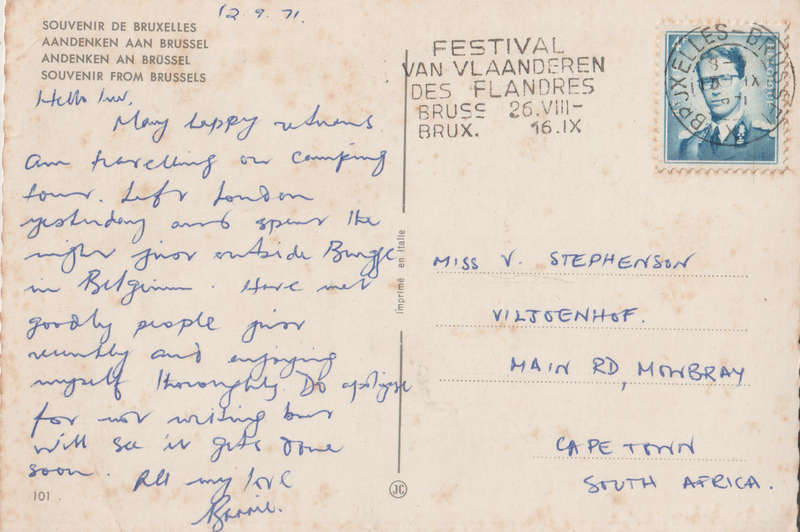 12.9.71.
SOUVENIR DE BRUXELLES
AANDENKEN AAN BRUSSEL
ANDENKEN AN BRÜSSEL
SOUVENIR FROM BRUSSELS
Hello
Many happy returns.
Am travelling on camping
tour. Left London
yesterday and spent the
night just outside Brugge
in Belgium. Have met
goodly people just
recently and enjoying
myself thoroughly. Do apologise
for not writing but
will see it gets done
soon.
All my love
101
imprimé en Italie
JC
FESTIVAL
VAN VLAANDEREN
DES FLANDRES
BRUSS 26.VIII-
BRUX. 16.IX
BRUXELLES BRUSSEL
MISS V. STEPHENSON
VILJOENHOF.
MAIN RD, MOWBRAY
CAPE TOWN
SOUTH AFRICA.